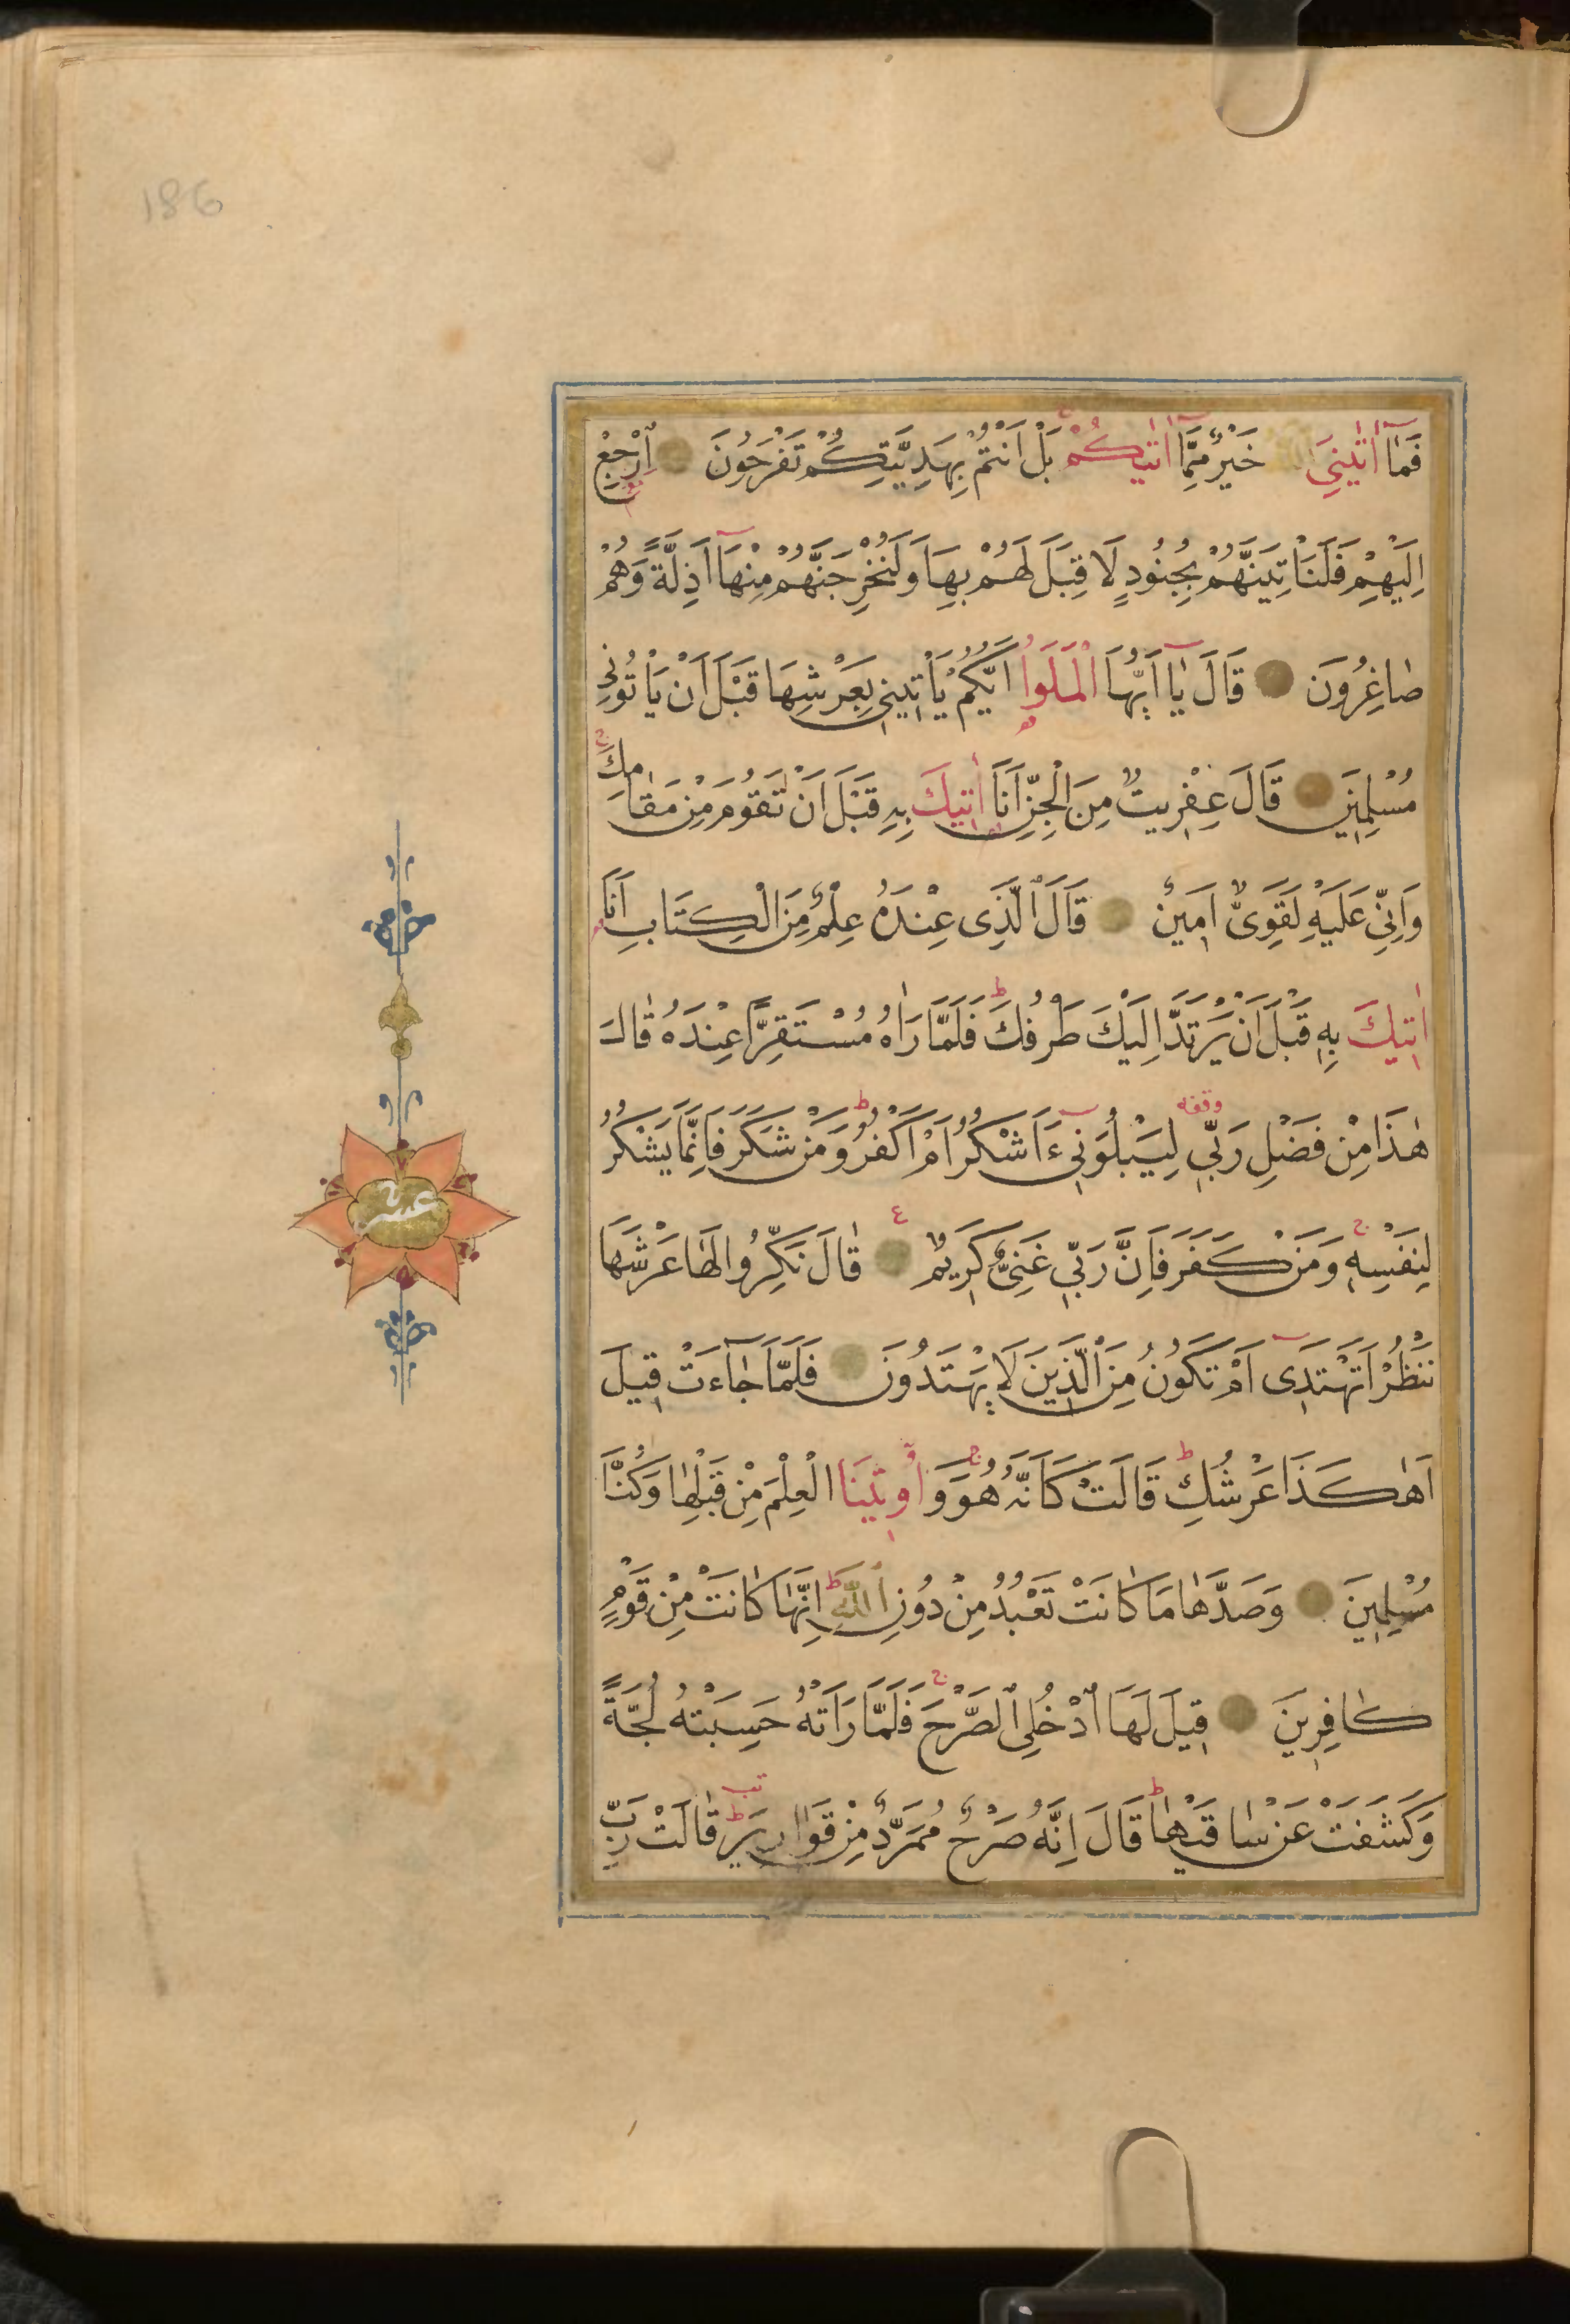 186
فَمَآ اٰتٰينِيَ اللّٰهُ خَيْرٌ مِمَّآ اٰتٰيكُمْ بَلْ اَنْتُمْ بِهَدِيَّتِكُمْ تَفْرَحُونَ اِرْجِعْ
اِلَيْهِمْ فَلَنَاْتِيَنَّهُمْ بِجُنُودٍ لَا قِبَلَ لَهُمْ بِهَا وَلَنُخْرِجَنَّهُمْ مِنْهَآ اَذِلَّةً وَهُمْ
صَاغِرُونَ قَالَ يَآ اَيُّهَا الْمَلَؤُا اَيُّكُمْ يَاْتِينِي بِعَرْشِهَا قَبْلَ اَنْ يَاْتُونِي
مُسْلِمِينَ قَالَ عِفْرِيتٌ مِنَ الْجِنِّ اَنَا اٰتِيكَ بِهِ قَبْلَ اَنْ تَقُومَ مِنْ مَقَامِكَ
وَاِنِّي عَلَيْهِ لَقَوِيٌّ اَمِينٌ قَالَ الَّذِي عِنْدَهُ عِلْمٌ مِنَ الْكِتَابِ اَنَا
اٰتِيكَ بِهِ قَبْلَ اَنْ يَرْتَدَّ اِلَيْكَ طَرْفُكَ فَلَمَّا رَاٰهُ مُسْتَقِرًّا عِنْدَهُ قَالَ
هٰذَا مِنْ فَضْلِ رَبِّي وقفه لِيَبْلُوَنِي ءَاَشْكُرُ اَمْ اَكْفُرُ وَمَنْ شَكَرَ فَاِنَّمَا يَشْكُرُ
لِنَفْسِهِ وَمَنْ كَفَرَ فَاِنَّ رَبِّي غَنِيٌّ كَرِيمٌ ع قَالَ نَكِّرُوا لَهَا عَرْشَهَا
عشر
نَنْظُرْ اَتَهْتَدِي اَمْ تَكُونُ مِنَ الَّذِينَ لَا يَهْتَدُونَ فَلَمَّا جَآءَتْ قِيلَ
اَهٰكَذَا عَرْشُكِ قَالَتْ كَاَنَّهُ هُوَ وَاُوتِينَا الْعِلْمَ مِنْ قَبْلِهَا وَكُنَّا
مُسْلِمِينَ وَصَدَّهَا مَا كَانَتْ تَعْبُدُ مِنْ دُونِ اللّٰهِ اِنَّهَا كَانَتْ مِنْ قَوْمٍ
كَافِرِينَ قِيلَ لَهَا ادْخُلِي الصَّرْحَ فَلَمَّا رَاَتْهُ حَسِبَتْهُ لُجَّةً
وَكَشَفَتْ عَنْ سَاقَيْهَا قَالَ اِنَّهُ صَرْحٌ مُمَرَّدٌ مِنْ قَوَارِيرَ قَالَتْ رَبِّ